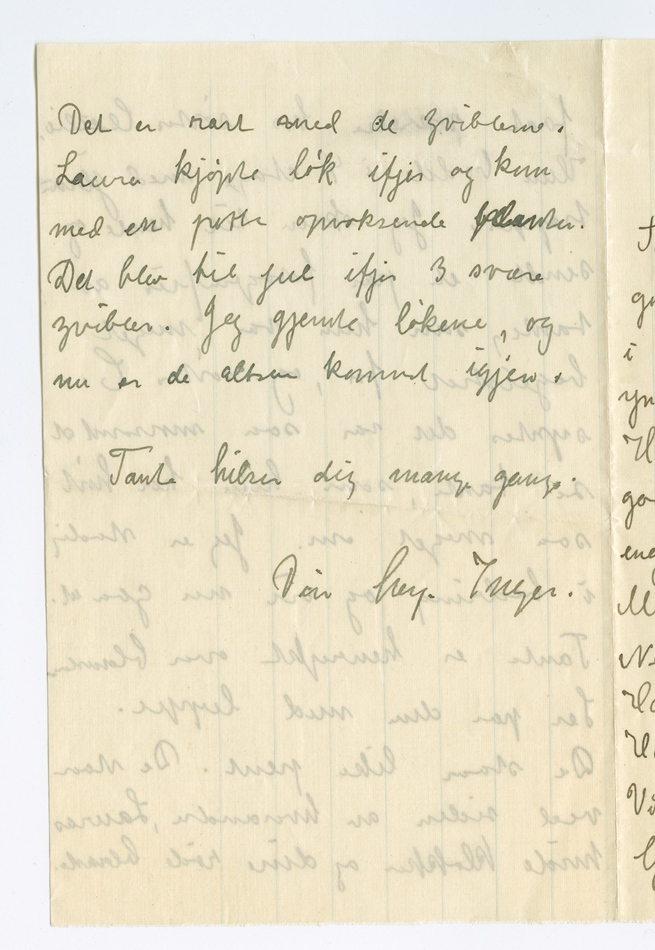 Det er rart med de zviblerne.
Laura kjøpte løk ifjer og kom
med en potte opvoksende planter.
Det blev til jul ifjer 3 svære
zvibler. Jeg gjemte løkene, og
nu er de altsaa kommet igjen.
Tante hilser dig mange gange.
Din heng. Inger.